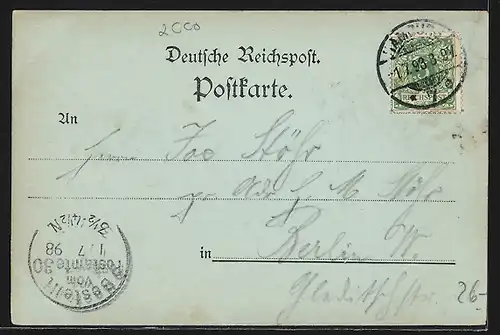 2000
Deutsche Reichspost.
Postkarte.
1.7.98.8-9V
REICHSPOST
An
Herrn Stöhr
M. Stöhr
in Berlin W.
Gleditschstr.
26-
Bestellt
vom
Postamte 30
1/7 98
3½-4½N.